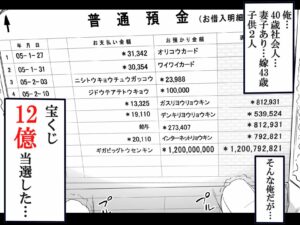 俺…
40歳社会人…
妻子あり…嫁43歳
子供2人
普通預金 (お借入明細
年月日 お支払い金額 お預かり金額
1 05-1-27 *31,342 オリコウカード
2 05-1-31 *30,354 ワイワイカード
3 05-2-03 ニシトウキョウチュウガッコウ *23,988
4 05-2-10 ジドウテアテトウキョウ *100,000
*13,325 ガスリヨウリョウキン *812,931
*19,110 デンキリヨウリョウキン *539,524
給与 *273,407 *812,931
*20,110 インターネットリョウキン *792,821
ギガビッグトウセンキン *1,200,000,000 *1,200,792,821
そんな俺だが…
宝くじ
12億
当選した…